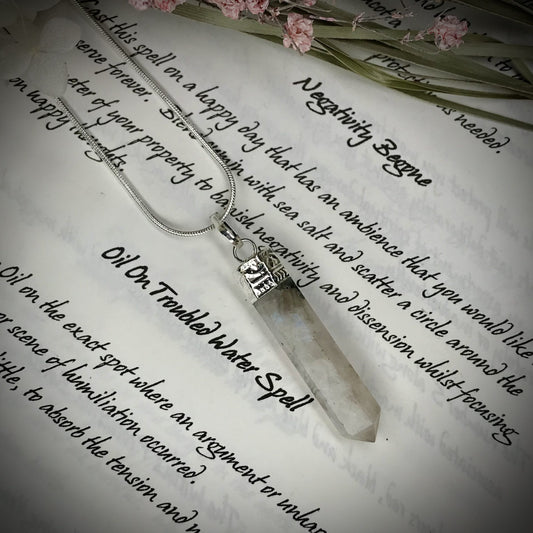 is needed.
Negativity Begone
Cast this spell on a happy day that has an ambience that you would like
serve forever. again with sea salt and scatter a circle around the
eter of your property to banish negativity and dissension whilst focusing
on happy thoughts.
Oil On Troubled Water Spell
Oil on the exact spot where an argument or unhap
or scene of humiliation occurred.
little, to absorb the tension and